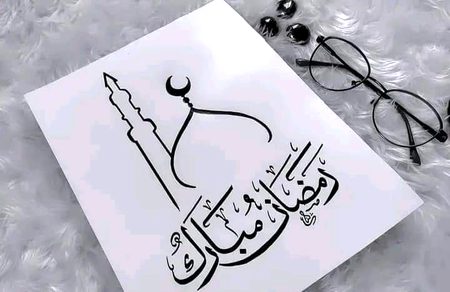 رمضان مُبارك